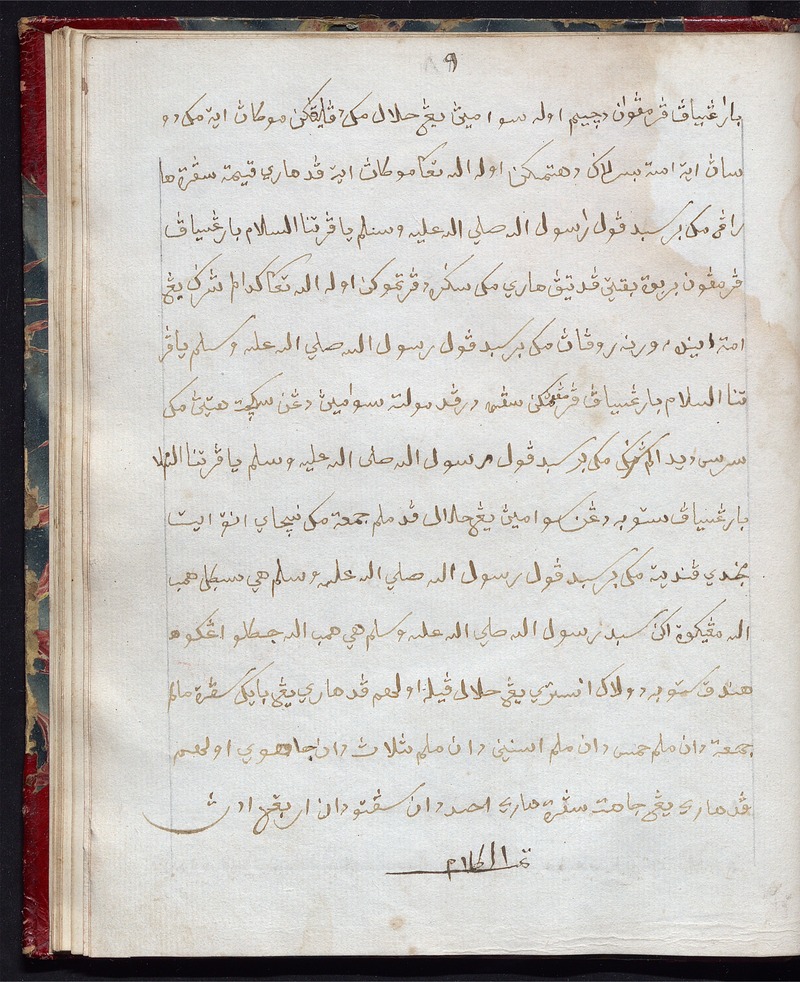 ٩
بارڠسياڤ ڤرمڤوان دچيم اوله سوامين يڠ حلال مك دڤليهراكن موكاث ايت مك دو
سات ايت امة بسر لاكي دهتمكن اوله الله تعالى موكاث ايت ڤد هاري قيمة سڤرة ها
راڠ مك برسبد ڤول رسول الله صلي الله عليه وسلم يا ڤرتنا السلام بارڠسياڤ
ڤرمڤون بربوة بقتي ڤد تيڤ هاري مك سكره دڤرتموكن اوله الله تعالى كدالم شرك يڠ
امة اينده ورنه روڤاث مك برسبد ڤول رسول الله صلي الله عليه وسلم يا ڤر
تنا السلام بارڠسياڤ ڤرمڤون سڤرة درڤد مولت سوامين دڠن سكچة هتي مك
مك برسبد ڤول رسول الله صلي الله عليه وسلم يا ڤرتنا السلا
بارڠسياڤ ستوبه دڠن سوامين يڠ حلال ڤد ملم جمعة مك نسچاي انق ايت
جندي ڤنديت مك برسبد ڤول رسول الله صلي الله عليه وسلم هي سكل همب
الله مڠيكوة اكن سبد رسول الله صلي الله عليه وسلم هي همب الله جكلو اڠكو
هندق ستوبه دولاك استري يڠ حلال ڤيله اولهم ڤد هاري يڠ بايك سڤرة ملم
جمعة دان ملم خمس دان ملم اسنين دان ملم ثلاث دان جاهوي اولهم
ڤد هاري يڠ جاهت سڤرة هاري احد دان سڤتو دان اربع ادث
تمت الكلام